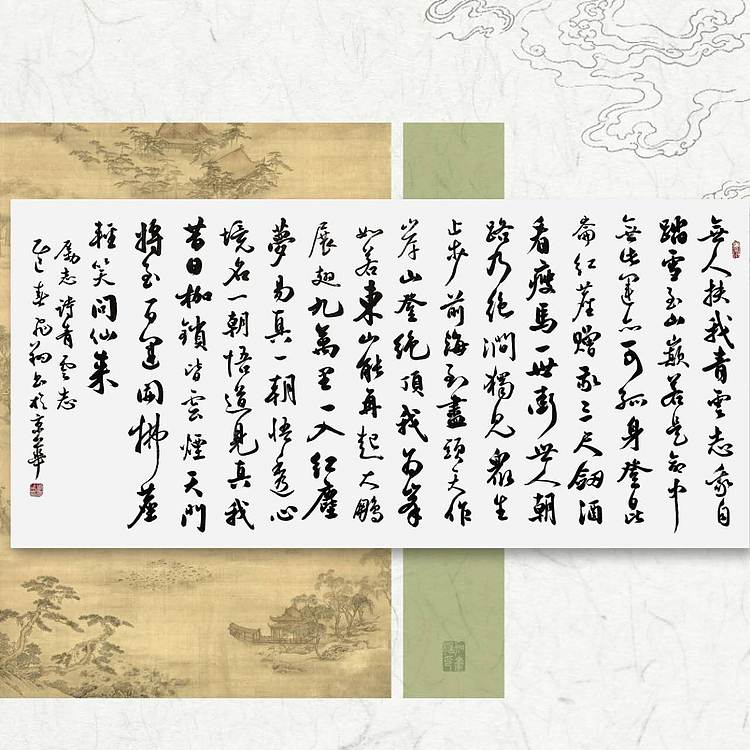 無人扶我青雲志我自
踏雪至山巔若是命中
無此運亦可孤身登昆
崙紅塵贈我三尺劍酒
看瘦馬一世衝世人朝
路乃絕澗獨見眾生
止步前海到盡頭天作
岸山登絕頂我為峯
如若東山能再起大鵬
展翅九萬里一入紅塵
夢易真一朝悟透心
境名一朝悟道見真我
昔日枷鎖皆雲煙天門
將至百運開拂塵
輕笑問仙來
勵志詩青雲志
乙巳春書於京華